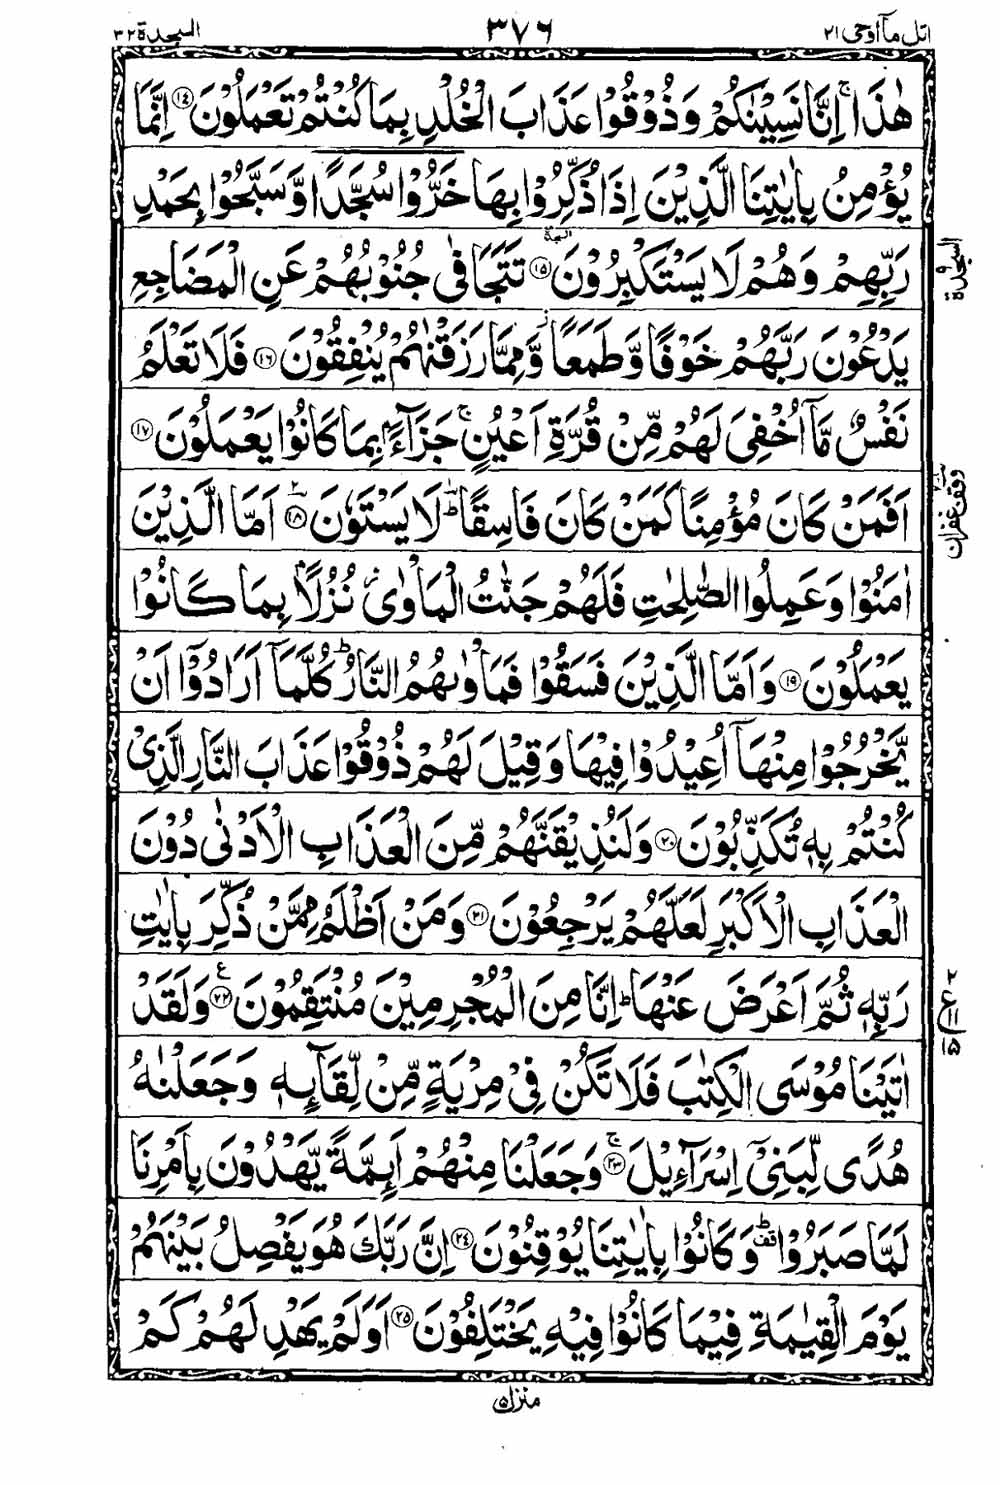 اتل مآ اوحی ۲۱ ۳۷۶ السجدة ۳۲
هٰذَا ۚ اِنَّا نَسِيْنٰكُمْ وَذُوْقُوْا عَذَابَ الْخُلْدِ بِمَا كُنْتُمْ تَعْمَلُوْنَ ۱۴ اِنَّمَا
يُؤْمِنُ بِاٰيٰتِنَا الَّذِيْنَ اِذَا ذُكِّرُوْا بِهَا خَرُّوْا سُجَّدًا وَّ سَبَّحُوْا بِحَمْدِ
رَبِّهِمْ وَهُمْ لَا يَسْتَكْبِرُوْنَ ۱۵ تَتَجَافٰى جُنُوْبُهُمْ عَنِ الْمَضَاجِعِ
السجدة
يَدْعُوْنَ رَبَّهُمْ خَوْفًا وَّ طَمَعًا وَّ مِمَّا رَزَقْنٰهُمْ يُنْفِقُوْنَ ۱۶ فَلَا تَعْلَمُ
نَفْسٌ مَّآ اُخْفِيَ لَهُمْ مِّنْ قُرَّةِ اَعْيُنٍ ۚ جَزَآءًۢ بِمَا كَانُوْا يَعْمَلُوْنَ ۱۷
اَفَمَنْ كَانَ مُؤْمِنًا كَمَنْ كَانَ فَاسِقًا ؕ لَا يَسْتَوٗنَ ۱۸ اَمَّا الَّذِيْنَ
وقف غفران
اٰمَنُوْا وَعَمِلُوا الصّٰلِحٰتِ فَلَهُمْ جَنّٰتُ الْمَاْوٰى ۫ نُزُلًاۢ بِمَا كَانُوْا
يَعْمَلُوْنَ ۱۹ وَاَمَّا الَّذِيْنَ فَسَقُوْا فَمَاْوٰىهُمُ النَّارُ ؕ كُلَّمَآ اَرَادُوْٓا اَنْ
يَّخْرُجُوْا مِنْهَآ اُعِيْدُوْا فِيْهَا وَقِيْلَ لَهُمْ ذُوْقُوْا عَذَابَ النَّارِ الَّذِيْ
كُنْتُمْ بِهٖ تُكَذِّبُوْنَ ۲۰ وَلَنُذِيْقَنَّهُمْ مِّنَ الْعَذَابِ الْاَدْنٰى دُوْنَ
الْعَذَابِ الْاَكْبَرِ لَعَلَّهُمْ يَرْجِعُوْنَ ۲۱ وَمَنْ اَظْلَمُ مِمَّنْ ذُكِّرَ بِاٰيٰتِ
رَبِّهٖ ثُمَّ اَعْرَضَ عَنْهَا ؕ اِنَّا مِنَ الْمُجْرِمِيْنَ مُنْتَقِمُوْنَ ۲۲ وَلَقَدْ
۲ ع ۱۱ ۱۵
اٰتَيْنَا مُوْسَى الْكِتٰبَ فَلَا تَكُنْ فِيْ مِرْيَةٍ مِّنْ لِّقَآئِهٖ وَجَعَلْنٰهُ
هُدًى لِّبَنِيْٓ اِسْرَآءِيْلَ ۲۳ وَجَعَلْنَا مِنْهُمْ اَئِمَّةً يَّهْدُوْنَ بِاَمْرِنَا
لَمَّا صَبَرُوْا ؕ وَكَانُوْا بِاٰيٰتِنَا يُوْقِنُوْنَ ۲۴ اِنَّ رَبَّكَ هُوَ يَفْصِلُ بَيْنَهُمْ
يَوْمَ الْقِيٰمَةِ فِيْمَا كَانُوْا فِيْهِ يَخْتَلِفُوْنَ ۲۵ اَوَلَمْ يَهْدِ لَهُمْ كَمْ
منزل ۵